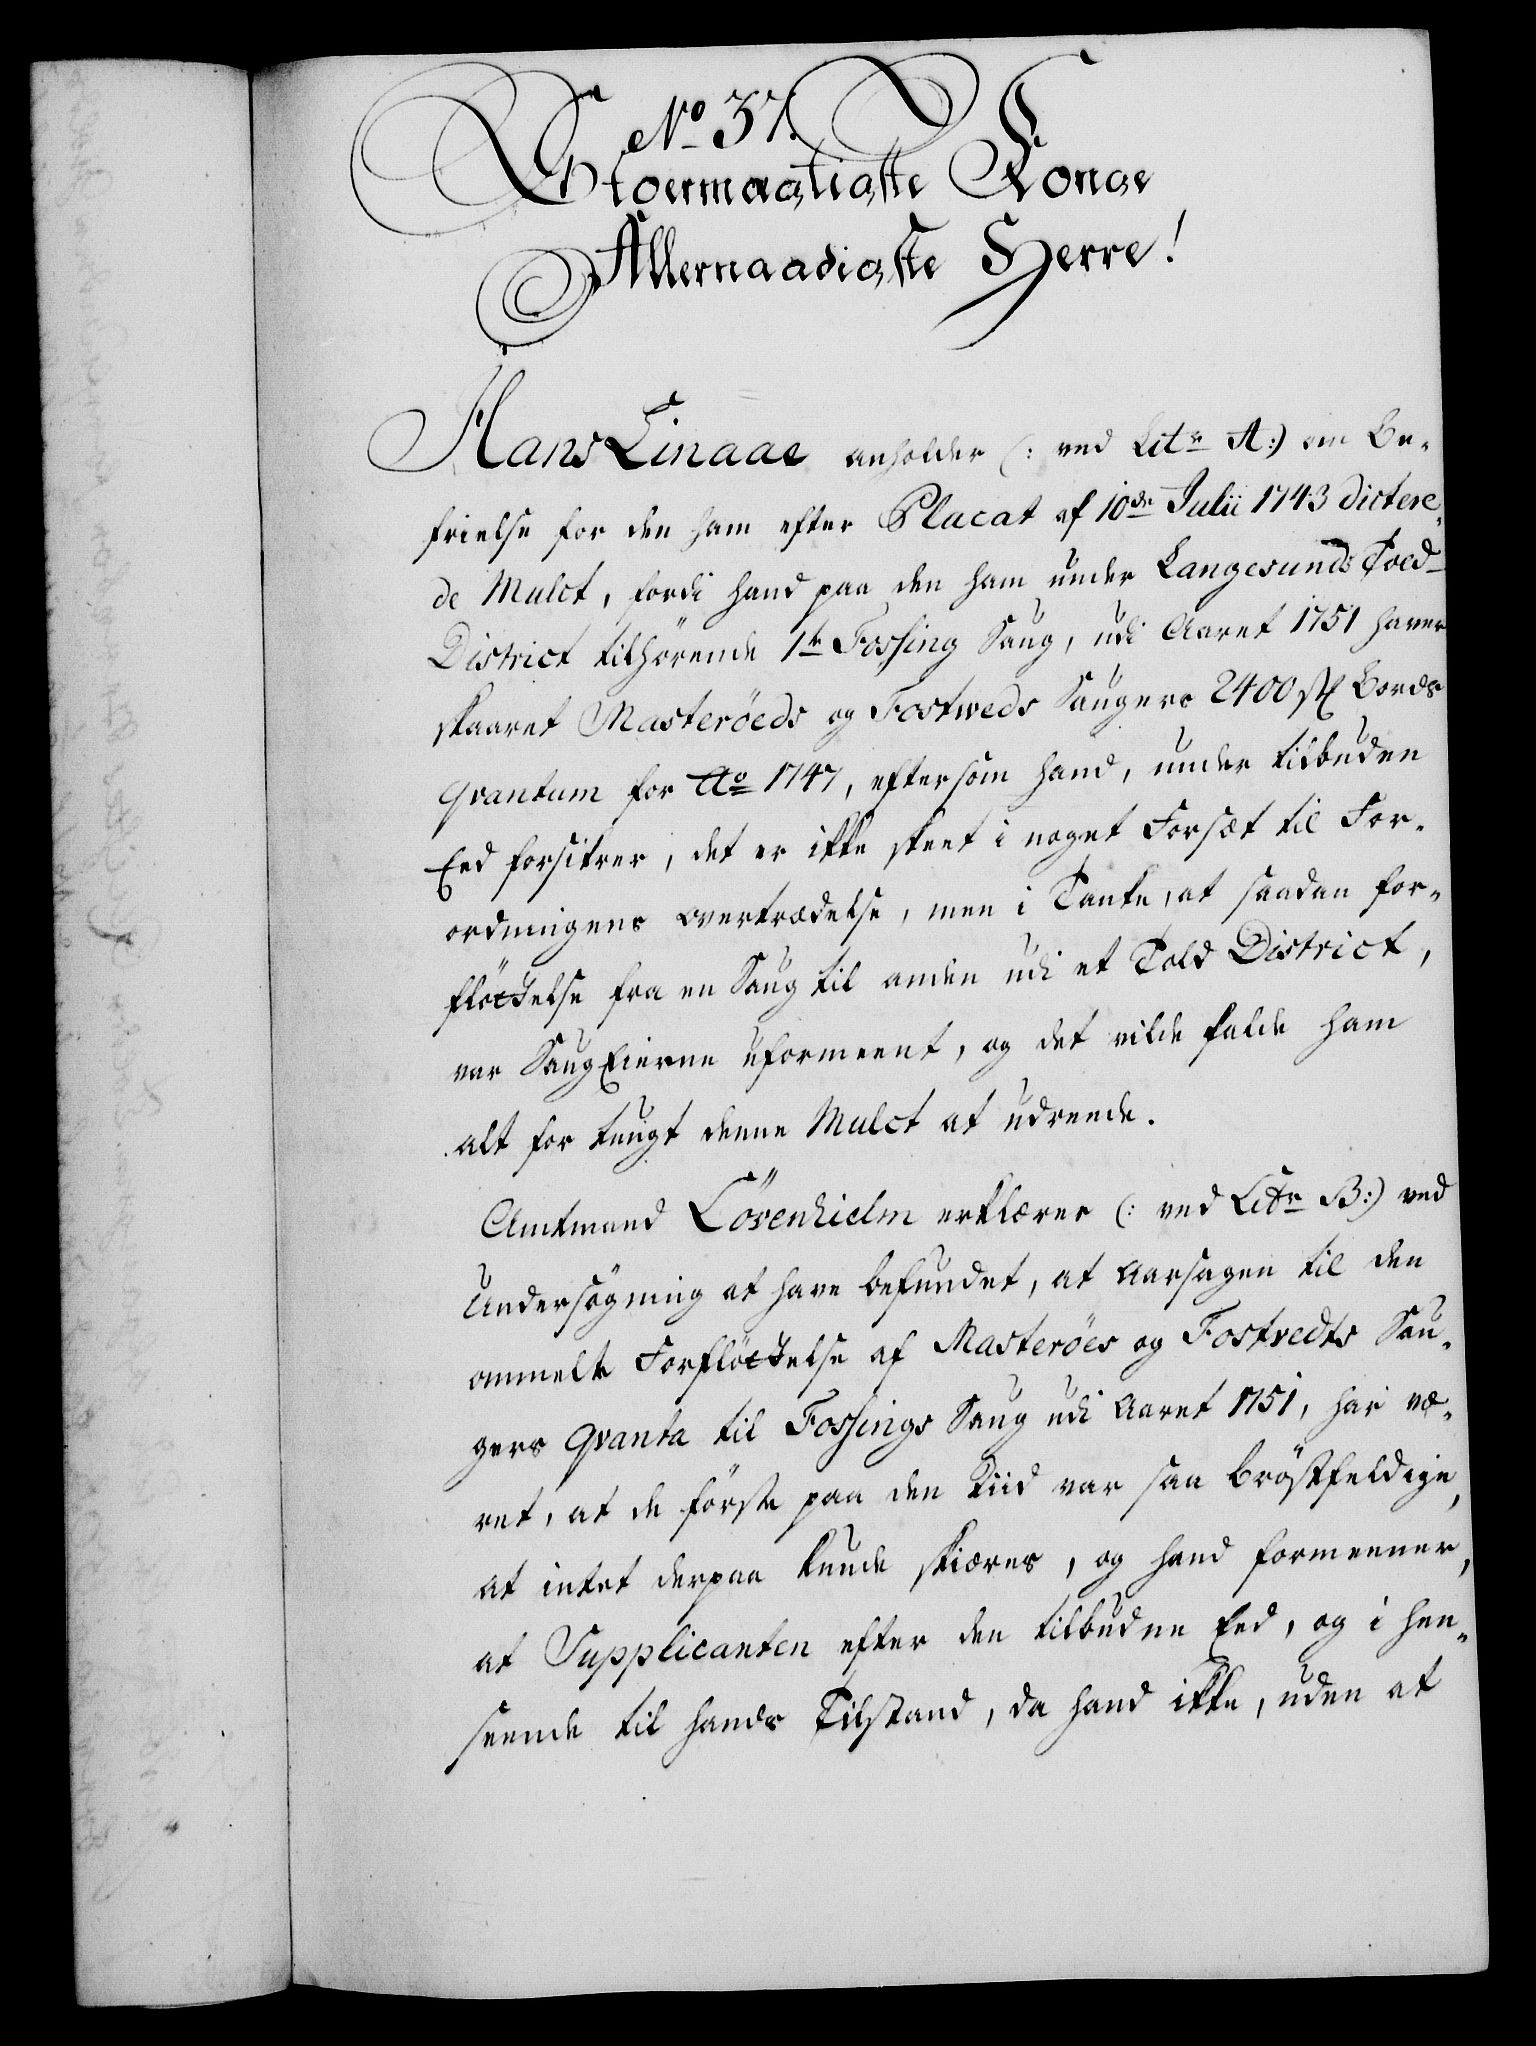 No 37.
Stoermægtigste Konge
Allernaadigste Herre!
Hans Linaae anholder (: ved Litr A:) om Be-
frielse for den ham efter Placat af 10de Julii 1743 dictere-
de Mulct, fordi hand paa den ham under Langesunds Toed-
District tilhörende 1te Fossing Saug, udi Aaret 1751 haver
skaaret Masteröeds og Fostweds Saugers 2400 st Bords
qvantum for Ao 1747, eftersom hand, under tilbuden
Eed forsikrer, det er ikke skeet i noget Forsæt til For-
ordningens overtrædelse, men i Tanke, at saadan for-
flöttelse fra en Saug til anden udi et Told District,
var SaugEierne uformeent, og det vilde falde ham
alt for tungt denne Mulct at udreede.
Amtmand Lövenhielm erklærer (: ved Litr B:) ved
Undersögning at have befundet, at Aarsagen til den
ommelte Forflöttelse af Masteröes og Fostvedts Sau-
gers qvanta til Fossings Saug udi Aaret 1751, har væ-
ret, at de förste paa den Tiid var saa bröstfeldige,
at intet derpaa kunde skiæres, og hand formeener,
at Supplicanten efter den tilbudne Eed, og i hen-
seende til hands Tilstand, da hand ikke, uden at